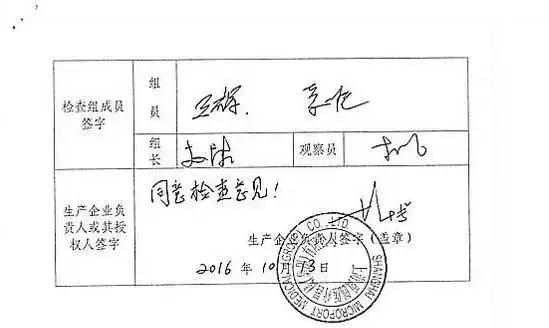 检查组成员
签字
组
员
王辉.
组
长
观察员
生产企业负
责人或其授
权人签字
同意检查意见！
生产企业负责人签字（盖章）
2016 年 10 月 13 日
SHANGHAI MICROPORT MEDICAL (GROUP) CO., LTD.